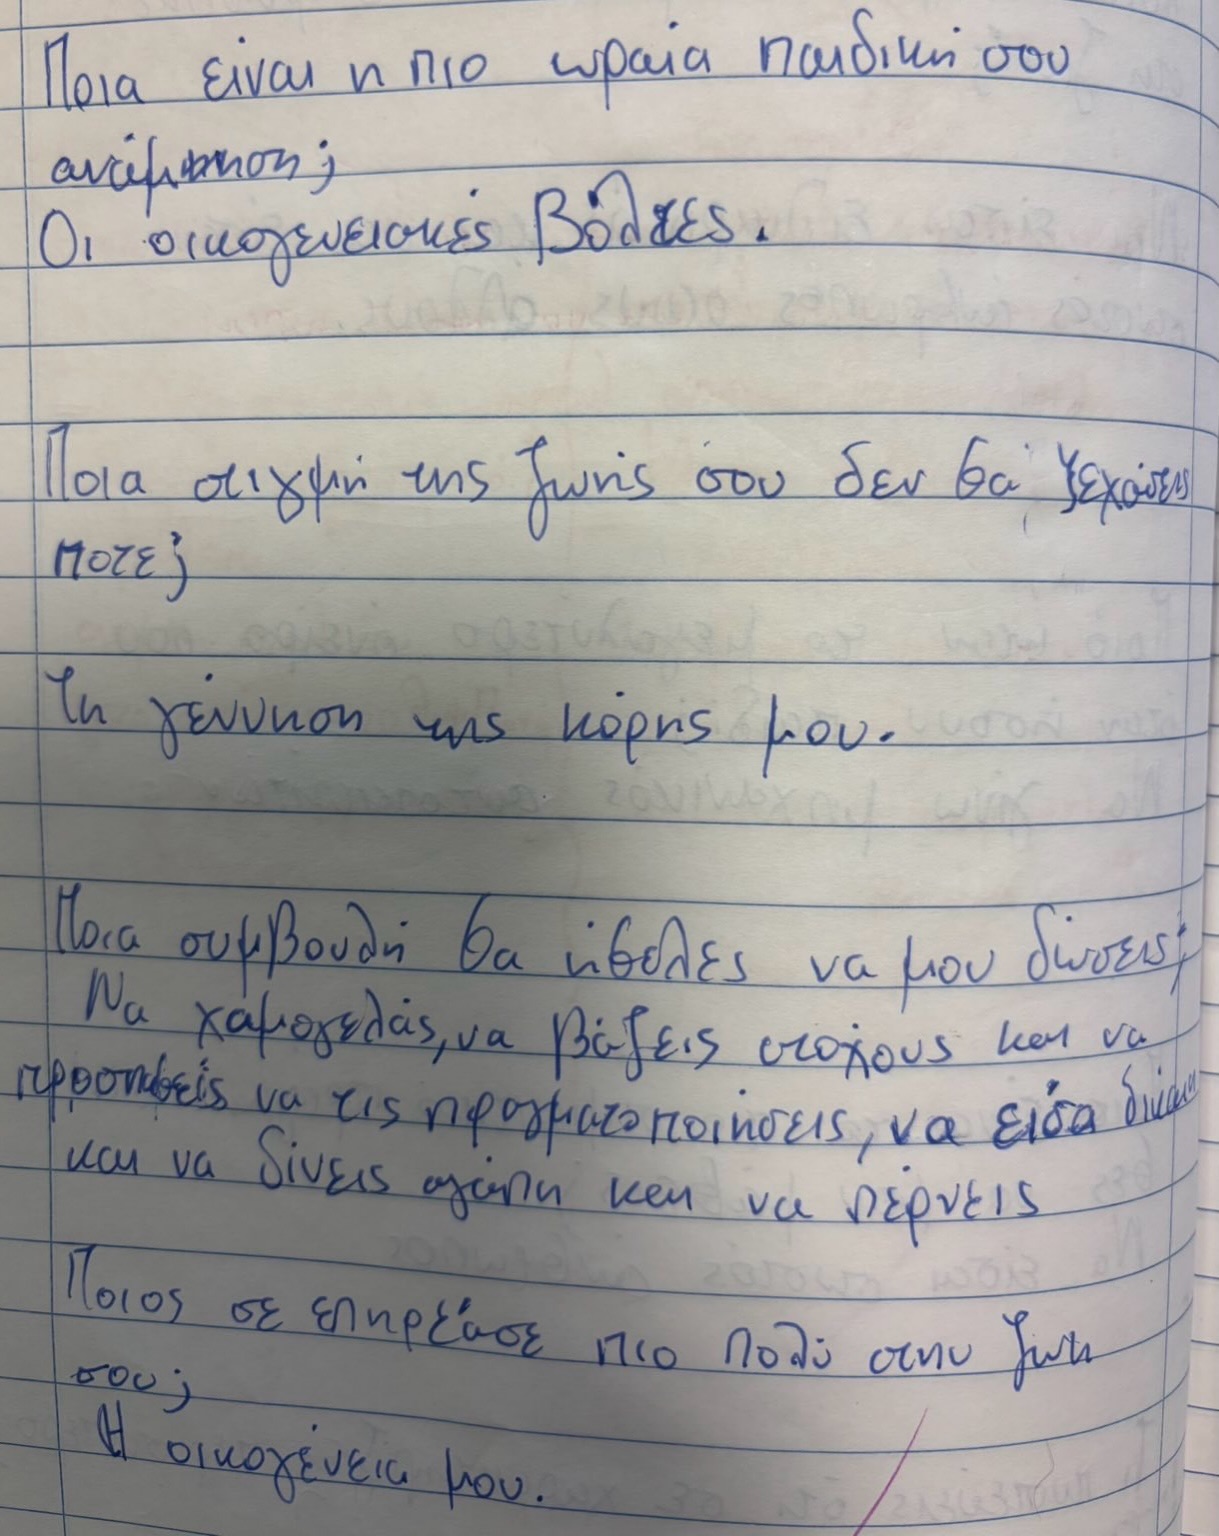 Ποια είναι η πιο ωραία παιδική σου
ανάμνηση;
Οι οικογενειακές βόλτες.
Ποια στιγμή της ζωής σου δεν θα ξεχάσεις
ποτε;
Τη γέννηση της κόρης μου.
Ποια συμβουλή θα ήθελες να μου δώσεις;
Να χαμογελάς, να βάζεις στόχους και να
προσπαθείς να τις πραγματοποιήσεις, να είσαι δίκαιη
και να δίνεις αγάπη και να πέρνεις
Ποιος σε επηρέασε πιο πολύ στην ζωή
σου;
Η οικογένεια μου.